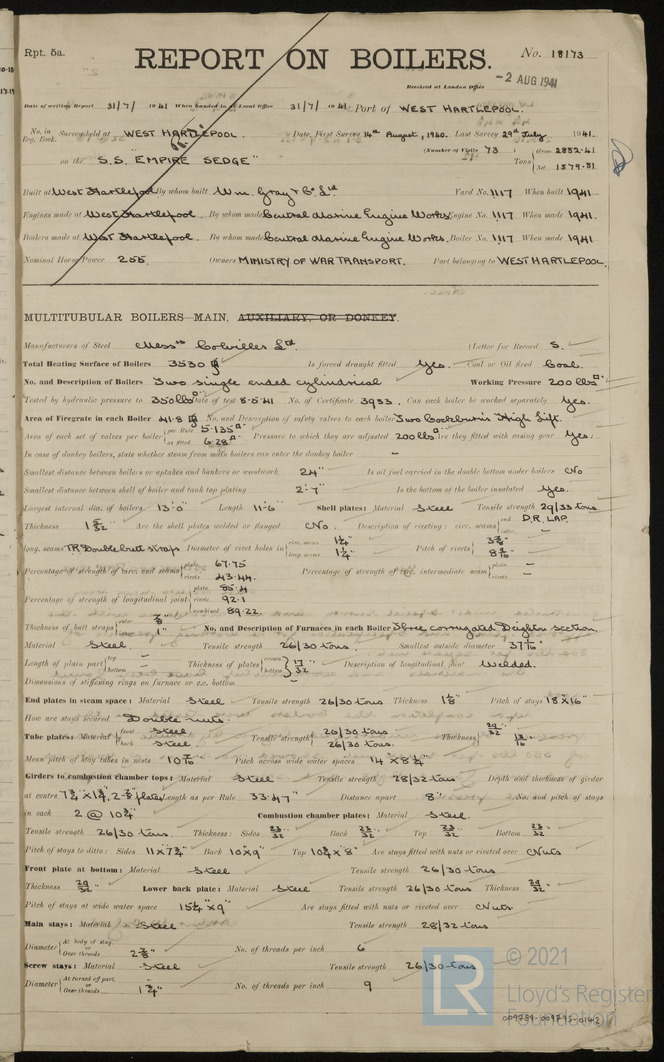 Rpt. 5a.
REPORT ON BOILERS.
No. 18173
Received at London Office
-2 AUG 1941
Date of writing Report 31/7/1941 When handed in at Local Office 31/7/1941 Port of WEST HARTLEPOOL.
No. in Reg. Book. Survey held at WEST HARTLEPOOL. Date, First Survey 14th August, 1940. Last Survey 29th July 1941.
(Number of Visits 73)
on the S.S. "EMPIRE SEDGE" Tons Gross 2852.41 Net 1579.51
Built at West Hartlepool By whom built Wm. Gray & Co. Ltd Yard No. 1117 When built 1941
Engines made at West Hartlepool. By whom made Central Marine Engine Works. Engine No. 1117 When made 1941.
Boilers made at West Hartlepool. By whom made Central Marine Engine Works. Boiler No. 1117 When made 1941
Nominal Horse Power 255. Owners MINISTRY OF WAR TRANSPORT. Port belonging to WEST HARTLEPOOL.
MULTITUBULAR BOILERS—MAIN, AUXILIARY, OR DONKEY.
Manufacturers of Steel Messrs Colvilles Ltd. (Letter for Record S.
Total Heating Surface of Boilers 3530 Is forced draught fitted Yes. Coal or Oil fired Coal.
No. and Description of Boilers Two single ended cylindrical Working Pressure 200 lbs
Tested by hydraulic pressure to 350 lbs Date of test 8.5.41 No. of Certificate 3933. Can each boiler be worked separately Yes.
Area of Firegrate in each Boiler 41.8 No. and Description of safety valves to each boiler Two Cockburn's High Lift.
Area of each set of valves per boiler per Rule 5.135 as fitted 6.28 Pressure to which they are adjusted 200 lbs Are they fitted with easing gear Yes.
In case of donkey boilers, state whether steam from main boilers can enter the donkey boiler –
Smallest distance between boilers or uptakes and bunkers or woodwork 24" Is oil fuel carried in the double bottom under boilers No
Smallest distance between shell of boiler and tank top plating 2'-7" Is the bottom of the boiler insulated Yes.
Largest internal dia. of boilers 13'-0" Length 11'-6" Shell plates: Material Steel Tensile strength 29/33 tons
Thickness 1 5/32 Are the shell plates welded or flanged No. Description of riveting: circ. seams end D.R. LAP. inter. –
long. seams TR Double butt straps Diameter of rivet holes in circ. seams 1 1/4" long. seams 1 1/4" Pitch of rivets
Percentage of strength of circ. end seams plate 67.75 rivets 43.44. Percentage of strength of circ. intermediate seam plate – rivets –
Percentage of strength of longitudinal joint plate 85.4 rivets 92.1 combined 89.22.
Thickness of butt straps outer 7/8 inner 1" No. and Description of Furnaces in each Boiler Three corrugated Deighton section
Material Steel. Tensile strength 26/30 tons. Smallest outside diameter
Length of plain part top – bottom – Thickness of plates crown bottom 17/32 Description of longitudinal joint Welded.
Dimensions of stiffening rings on furnace or c.c. bottom –
End plates in steam space: Material Steel Tensile strength 26/30 tons Thickness 1 1/8 Pitch of stays 18"x16"
How are stays secured Double nuts.
Tube plates: Material front Steel back Steel Tensile strength 26/30 tons 26/30 tons. Thickness 29/32 13/16
Mean pitch of stay tubes in nests 10 7/16 Pitch across wide water spaces 14"x8 1/4"
Girders to combustion chamber tops: Material Steel Tensile strength 28/32 tons Depth and thickness of girder
at centre Length as per Rule 33.47" Distance apart 8" No. and pitch of stays
in each 2 @ 10 3/4" Combustion chamber plates: Material Steel.
Tensile strength 26/30 tons. Thickness: Sides 23/32 Back 23/32 Top 23/32 Bottom 23/32
Pitch of stays to ditto: Sides 11"x7 3/4" Back 10"x9" Top 10 3/4"x8" Are stays fitted with nuts or riveted over Nuts
Front plate at bottom: Material Steel Tensile strength 26/30 tons
Thickness 29/32 Lower back plate: Material Steel Tensile strength 26/30 tons Thickness 29/32
Pitch of stays at wide water space 15 1/4"x9" Are stays fitted with nuts or riveted over Nuts
Main stays: Material Steel Tensile strength 28/32 tons
Diameter At body of stay or Over threads 2 7/8" No. of threads per inch 6
Screw stays: Material Steel Tensile strength 26/30 tons
Diameter At turned off part, or Over threads 1 3/4" No. of threads per inch 9
LR © 2021
Lloyd's Register
Foundation
009784-009795-0142